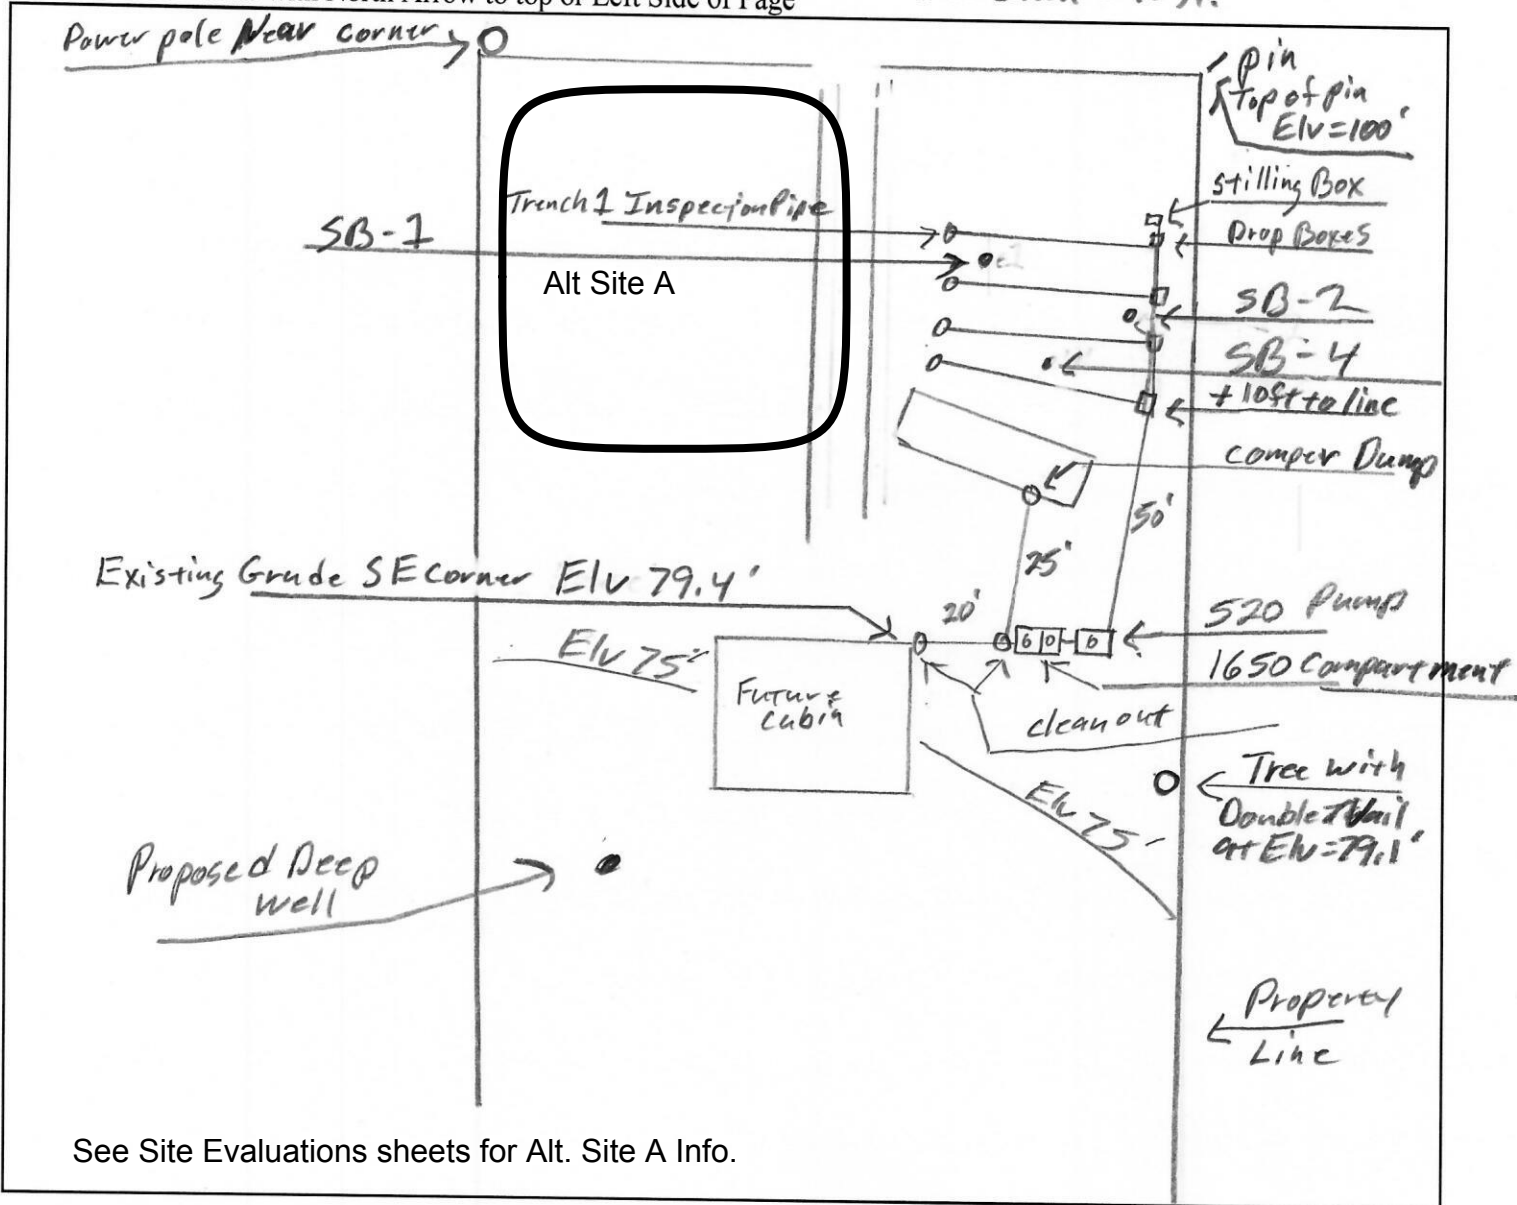 North Arrow to top or Left Side of Page
Power pole Near corner
pin
Top of pin
Elv=100'
Stilling Box
Drop Boxes
Trench 1 Inspection Pipe
SB-1
Alt Site A
SB-2
SB-4
+10ft to line
comper Dump
50'
25'
Existing Grade SE Corner Elv 79.4'
20'
520 Pump
6 0 6
1650 Compartment
Elv 75'
Future
Cabin
clean out
Tree with
Double Nail
at Elv=79.1'
Elv 75'
Proposed Deep
Well
Property
Line
See Site Evaluations sheets for Alt. Site A Info.